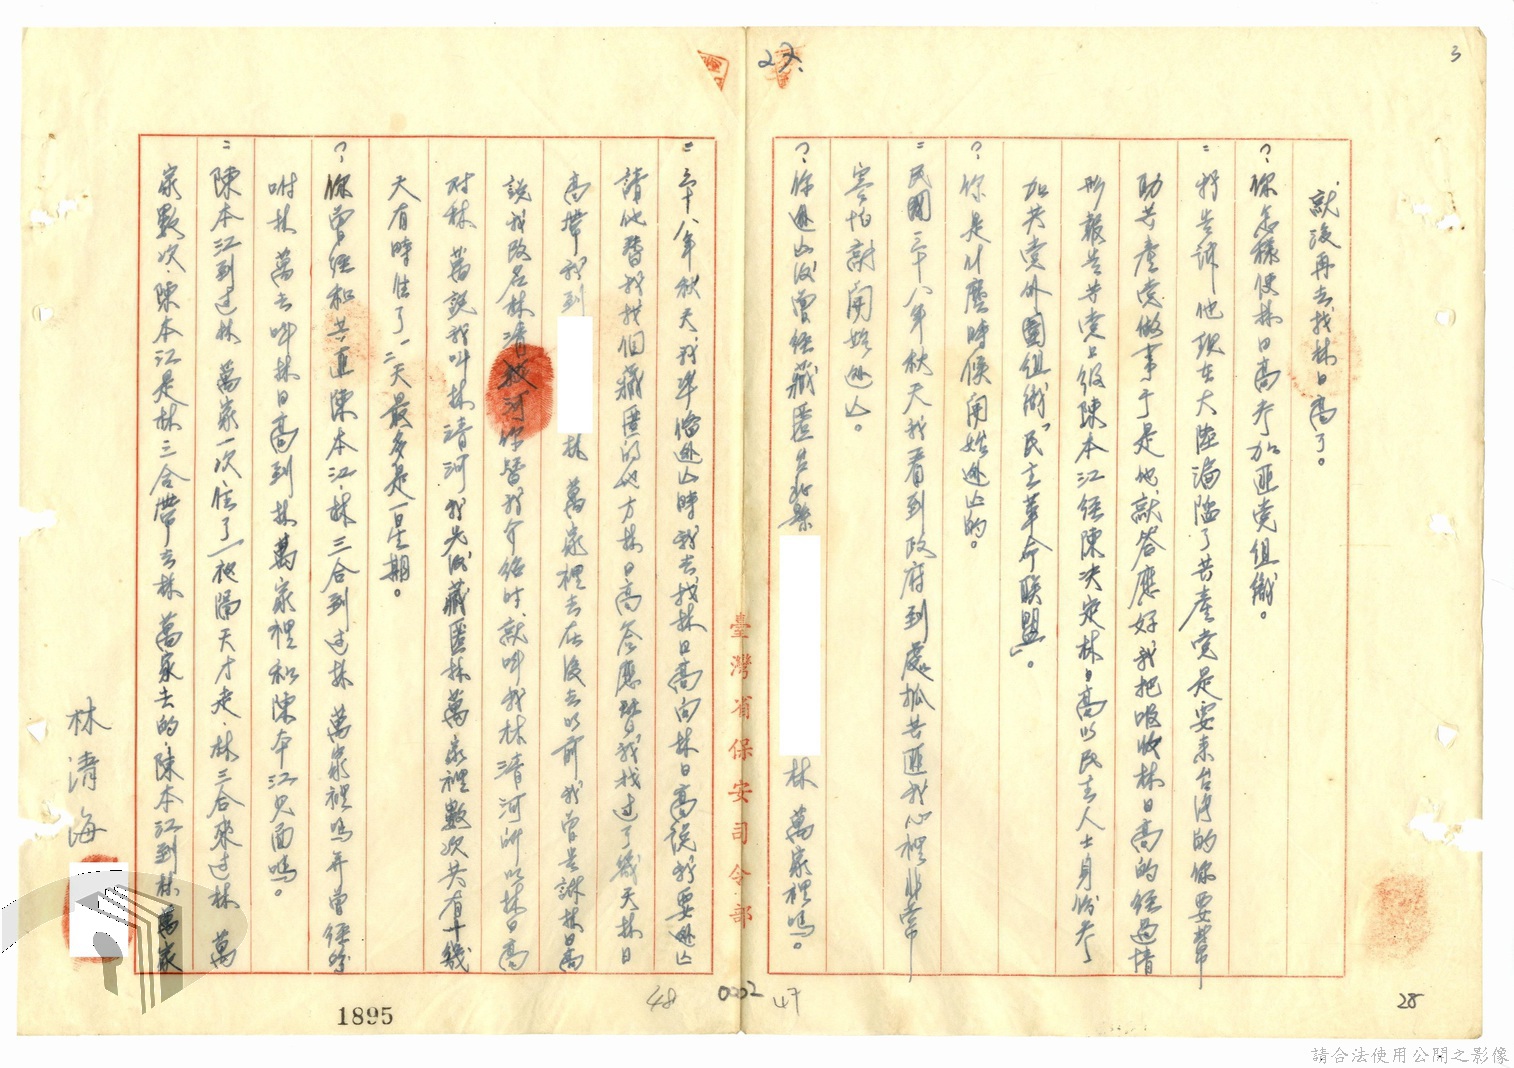 3
27.
就沒再去找林日高了。
?你怎樣使林日高參加匪党組織。
=我告訴他現在大陸淪陷了共產党是要来台湾的你要幫
助共產党做事于是他就答應好我把吸收林日高的經過情
形報告共党上級陳本江經陳决定林日高以民主人士身份參
加共党外圍組織「民主革命联盟」。
?你是什麼時候開始逃山的。
=民國三十八年秋天我看到政府到處抓共匪我心裡非常
害怕就開始逃山。
?你逃山後曾經藏匿台北縣 林 萬家裡嗎。
臺灣省保安司令部
=三十八年秋天我準偹逃山時我去找林日高向林日高說我要逃山
請他替我找個藏匿的地方林日高答應替我找過了幾天林日
高帶我到 林 萬家裡去在沒去以前我曾告訴林日高
說我改名林清河你替我介紹時就叫我林清河所以林日高
对林 萬說我叫林清河我先後藏匿林 萬家裡數次共有十幾
天有時住了一二天最多是一星期。
?你曾經和共匪陳本江、林三合到过林 萬家裡嗎并曾經吩
咐林 萬去叫林日高到林 萬家裡和陳本江見面嗎。
=陳本江到过林 萬家一次住了一夜隔天才走、林三合來过林 萬
家數次、陳本江是林三合帶去林 萬家去的、陳本江到林 萬家
林清海
1895
48
0002
47
28
請合法使用公開之影像